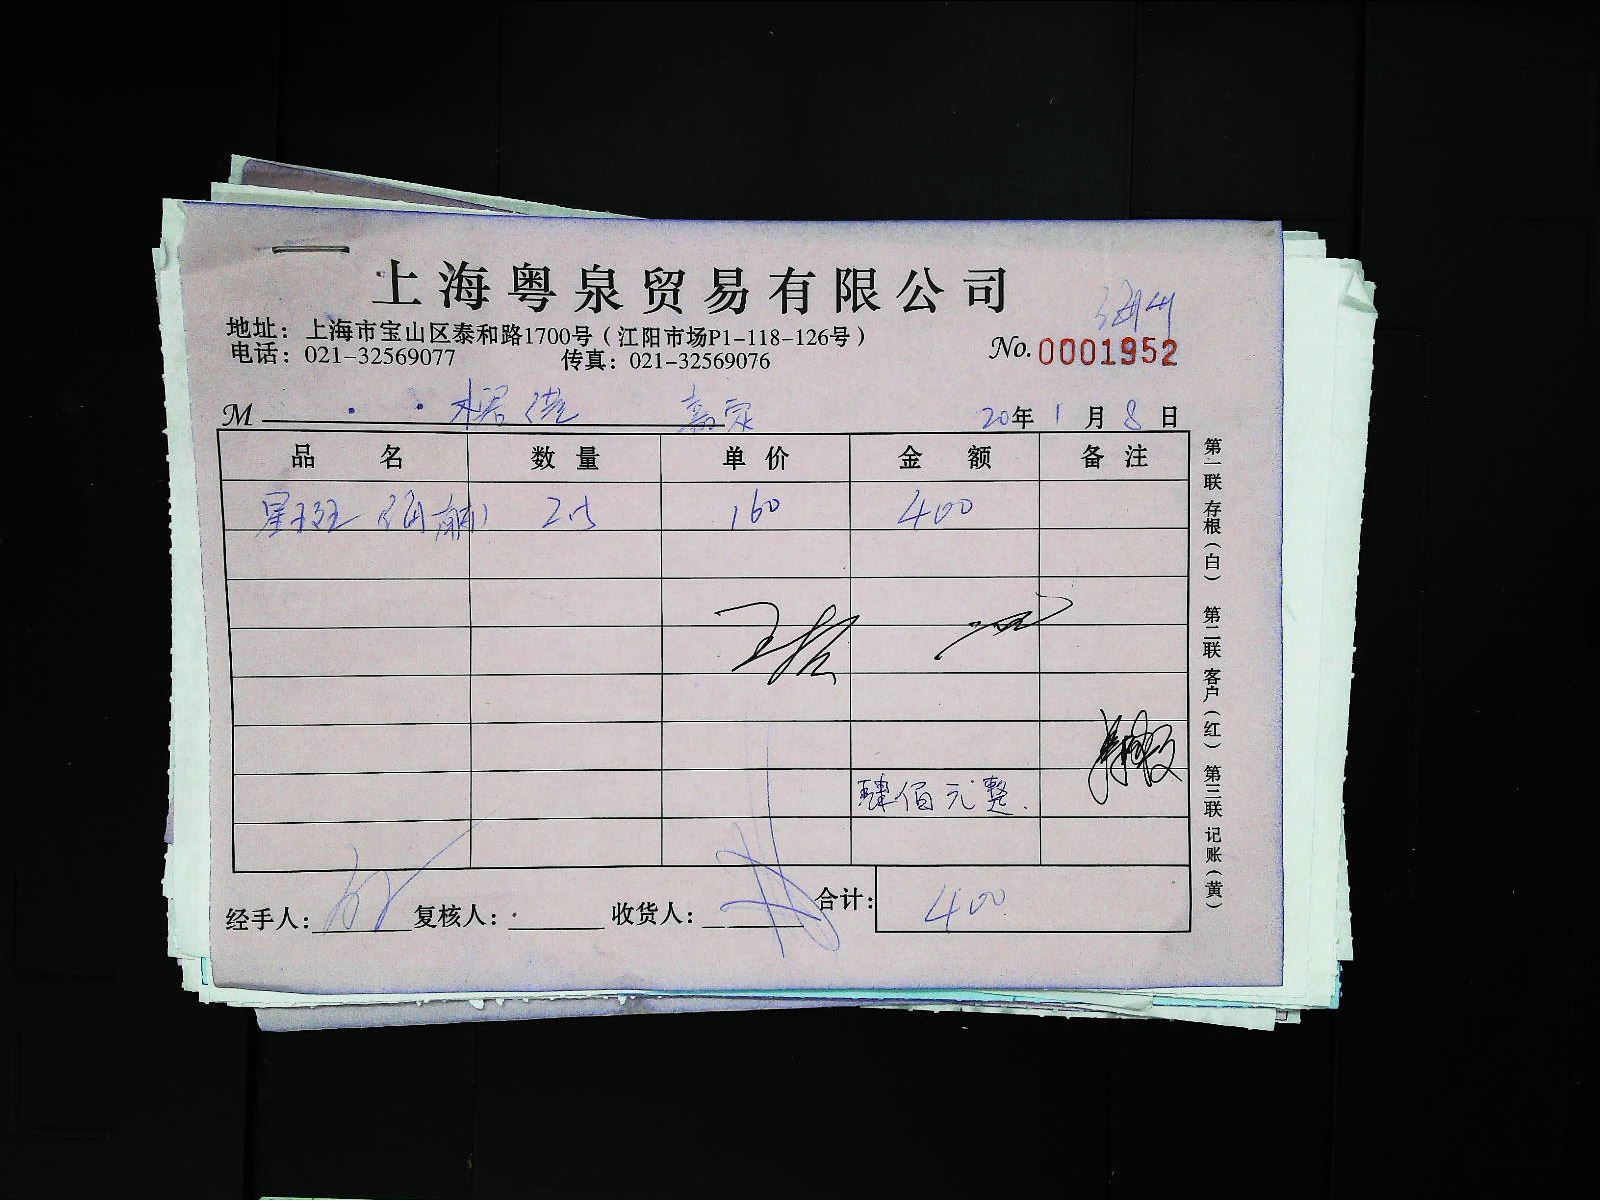 上海粤泉贸易有限公司
地址：上海市宝山区泰和路1700号（江阳市场P1-118-126号）
电话：021-32569077 传真：021-32569076
No. 0001952
M 嘉定 20年 1 月 8 日
品 名 数 量 单 价 金 额 备 注
星斑 160 400
肆佰元整.
经手人： 复核人： 收货人： 合计： 400
第一联 存根（白） 第二联 客户（红） 第三联 记账（黄）